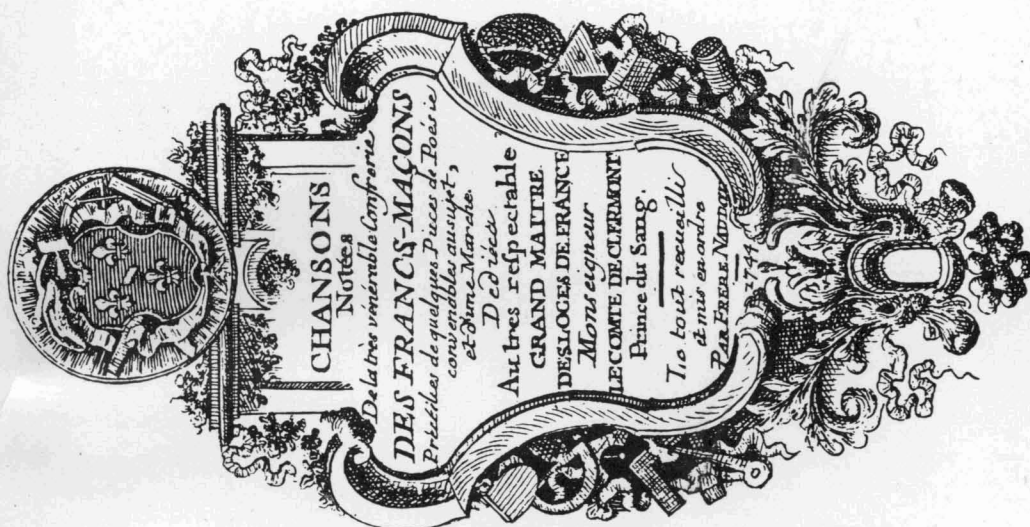 CHANSONS
Notées
De la très vénérable Confrerie
DES FRANCS-MAÇONS
Précédées de quelques Pieces de Poësie
convenables au sujet,
et d'une Marche.
Dediées
Au tres respectable
GRAND MAITRE
DES LOGES DE FRANCE
Monseigneur
LE COMTE DE CLERMONT
Prince du Sang.
Le tout recueilli
et mis en ordre
PAR FRERE NAUDOT
1744